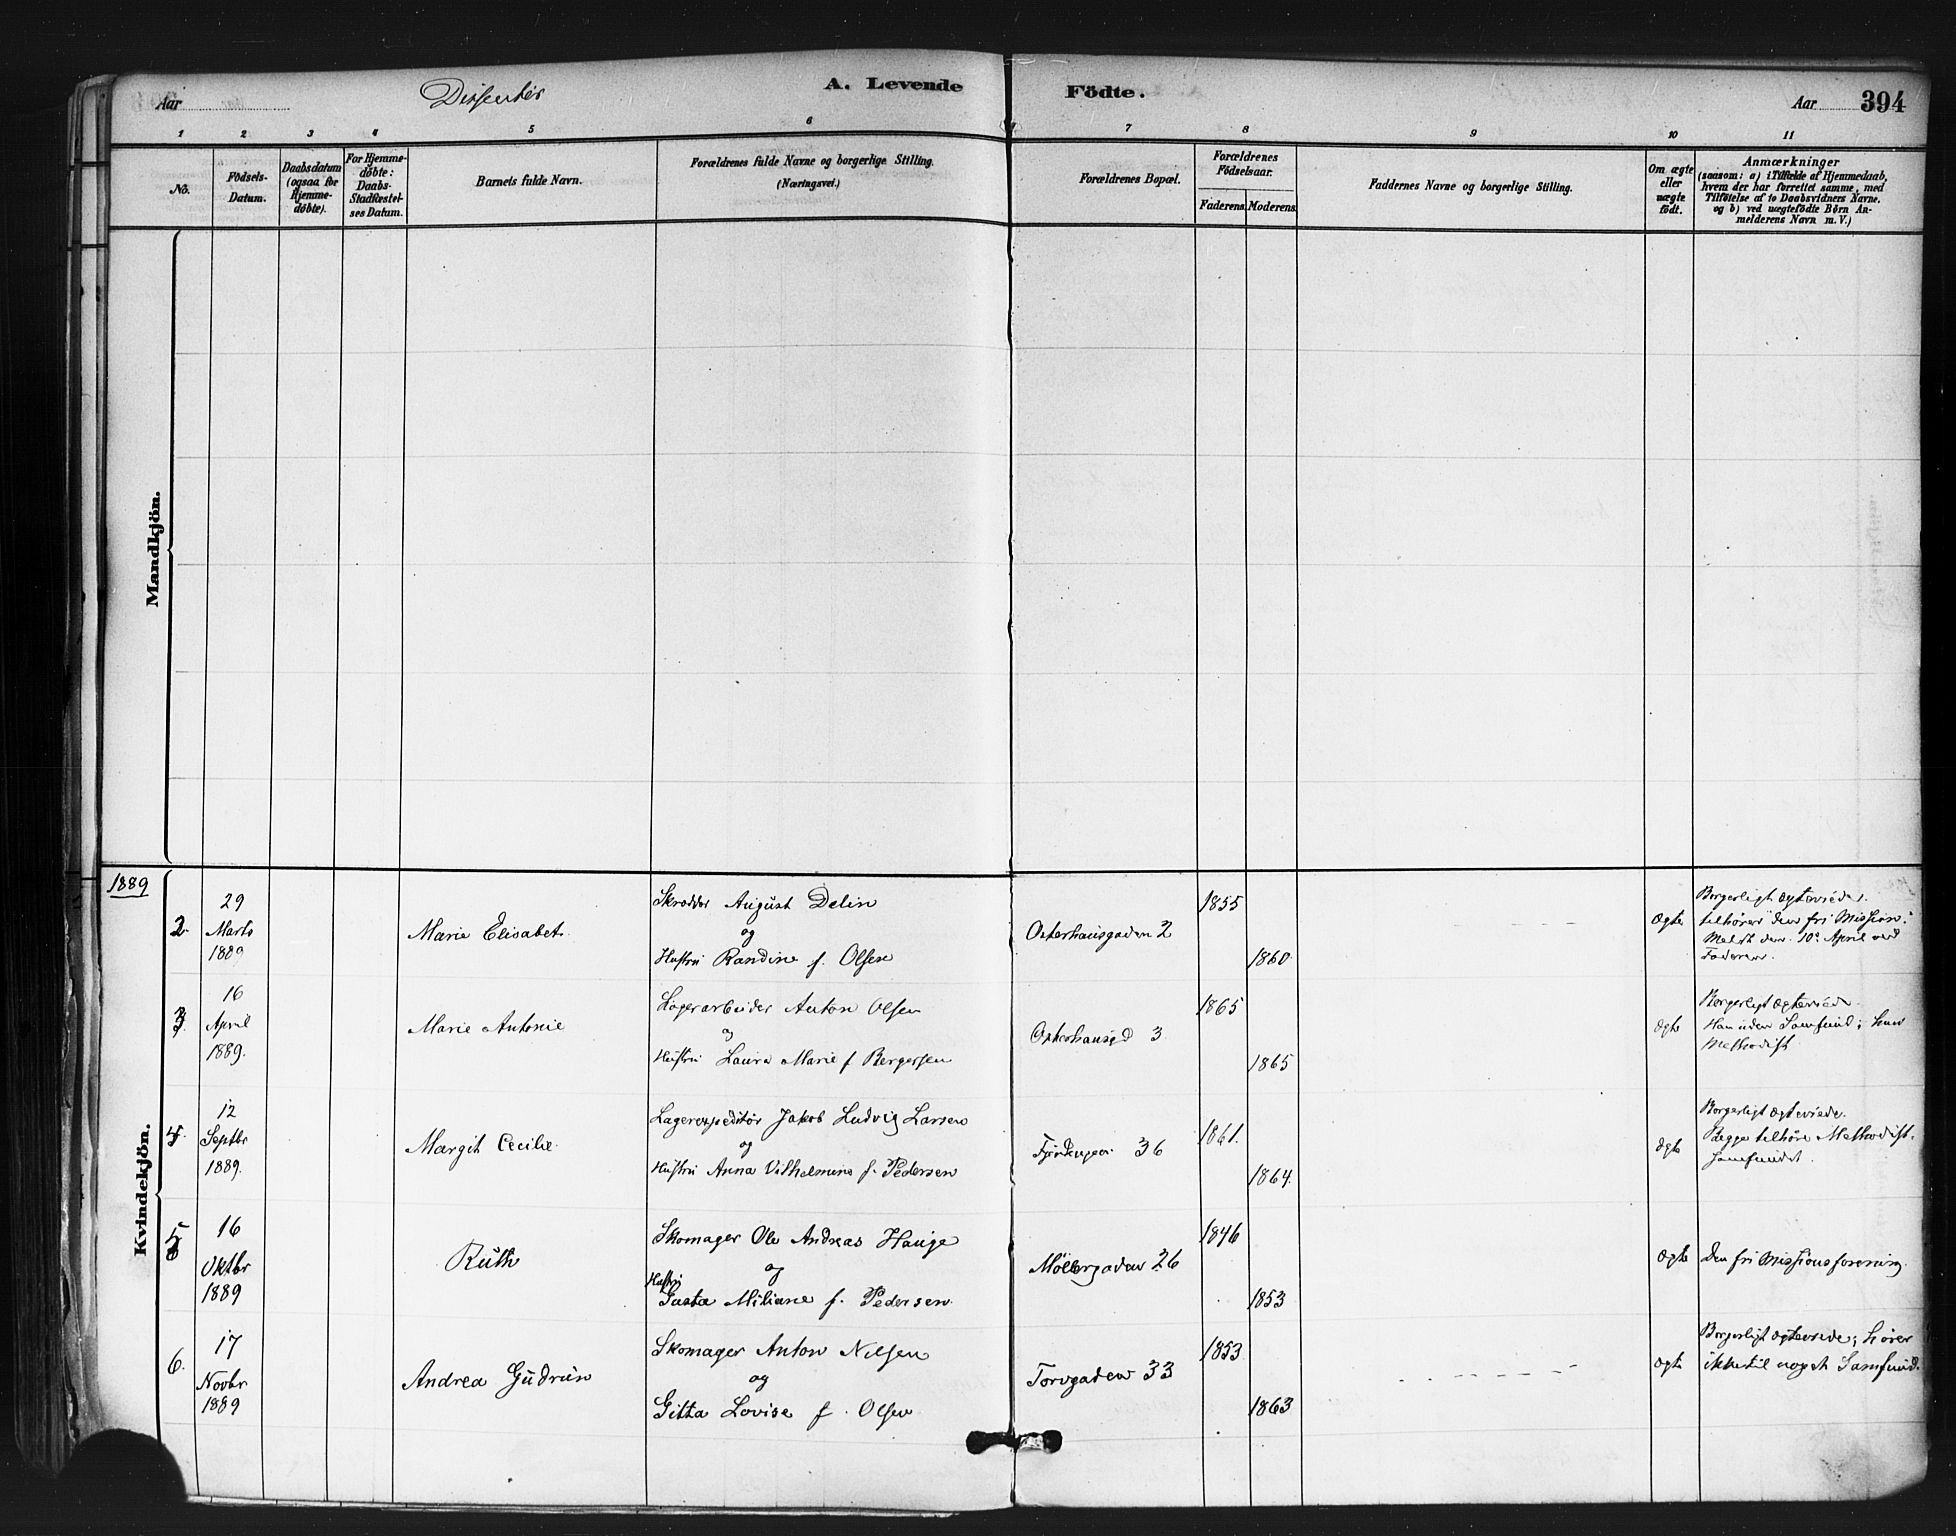 Aar
Dissenter
A. Levende
Födte.
Aar
394
1 2 3 4 5 6 7 8 9 10 11
No.
Födsels-
Datum.
Daabsdatum
(ogsaa for
Hjemme-
döbte).
For Hjemme-
döbte:
Daabs-
Stadfæstel-
ses Datum.
Barnets fulde Navn.
Forældrenes fulde Navne og borgerlige Stilling.
(Næringsvei.)
Forældrenes Bopæl.
Forældrenes
Födselsaar.
Faderens.
Moderens.
Faddernes Navne og borgerlige Stilling.
Om ægte
eller
uægte
født.
Anmærkninger
(saasom: a) i Tilfælde af Hjemmedaab,
hvem der har forrettet samme, med
Tilföielse af to Daabsvidners Navne.
og b) ved uægtefödte Börn An-
melderens Navn m. V.)
Mandkjön.
Kvindekjön.
1889
2.
29
Marts
1889
Marie Elisabet
Skrædder August Delin
og
Hustru Randine f. Olsen
Osterhausgaden 2
1855
1860
Ægte
Borgerligt ægteviede.
tilhører "den fri Mission."
Meldt den 10de April ved
Faderen.
3.
16
April
1889.
Marie Antonie
Lagerarbeider Anton Olsen
og
Hustru Laura Marie f Bergersen
Osterhausgd 3
1865
1865
Ægte
Borgerligt ægteviede.
Han uden Samfund; hun
Methodist
4.
12
Septbr
1889.
Margit Cecilie
Lagerexpeditör Jakob Ludvig Larsen
og
Hustru Anna Vilhelmine f. Pedersen
36
1861.
1864.
Ægte
Borgerligt ægteviede.
Begge tilhöre Methodist-
samfundet.
5
16
Oktbr
1889
Ruth
Skomager Ole Andreas Hauge
og
Hustru
Gusta Miliane f. Pedersen
Møllergaden 26
1846
1853
Ægte
Den fri Missionsforening.
6.
17
Novbr
1889
Andrea Gudrun
Skomager Anton Nilsen
og
Gitta Lovise f. Olsen
Torvgaden 33
1853
1863
Ægte
Borgerligt ægteviede; hører
ikke til noget Samfund.